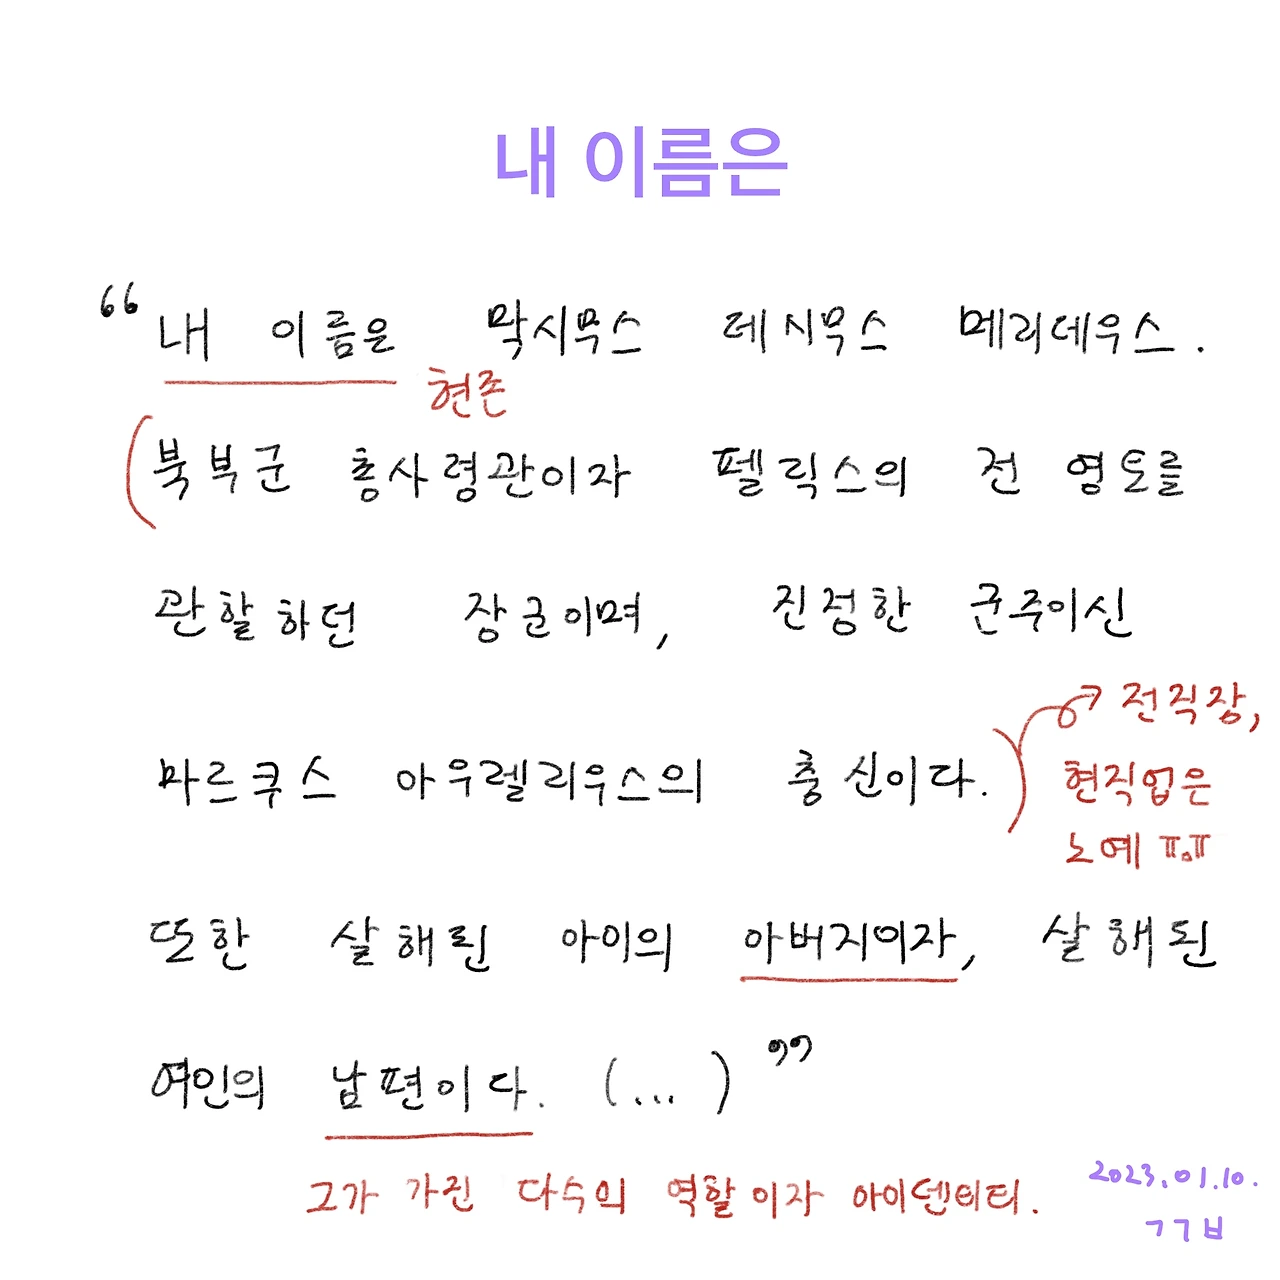 내 이름은
“내 이름은 막시무스 데시무스 메리데우스.
현존
북부군 총사령관이자 펠릭스의 전 영토를
관할하던 장군이며, 진정한 군주이신
마르쿠스 아우렐리우스의 충신이다.
전직장,
현직업은
노예 ㅠ.ㅠ
또한 살해된 아이의 아버지이자, 살해된
여인의 남편이다. (...)”
그가 가진 다수의 역할이자 아이덴티티.
2023.01.10.
ㄱㄱㅂ